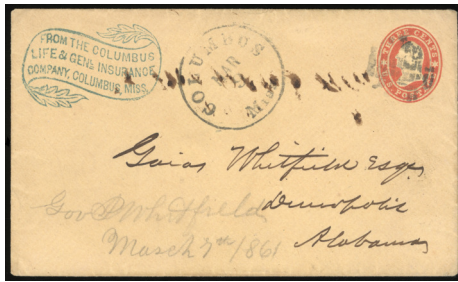 FROM THE COLUMBUS
LIFE & GENL INSURANCE
COMPANY, COLUMBUS, MISS.
COLUMBUS
MAR
Miss
THREE CENTS
U.S. POSTAGE
Gaius Whitfield Esqr
Demopolis
Alabama
Gov Whitfield
March 7th/1861